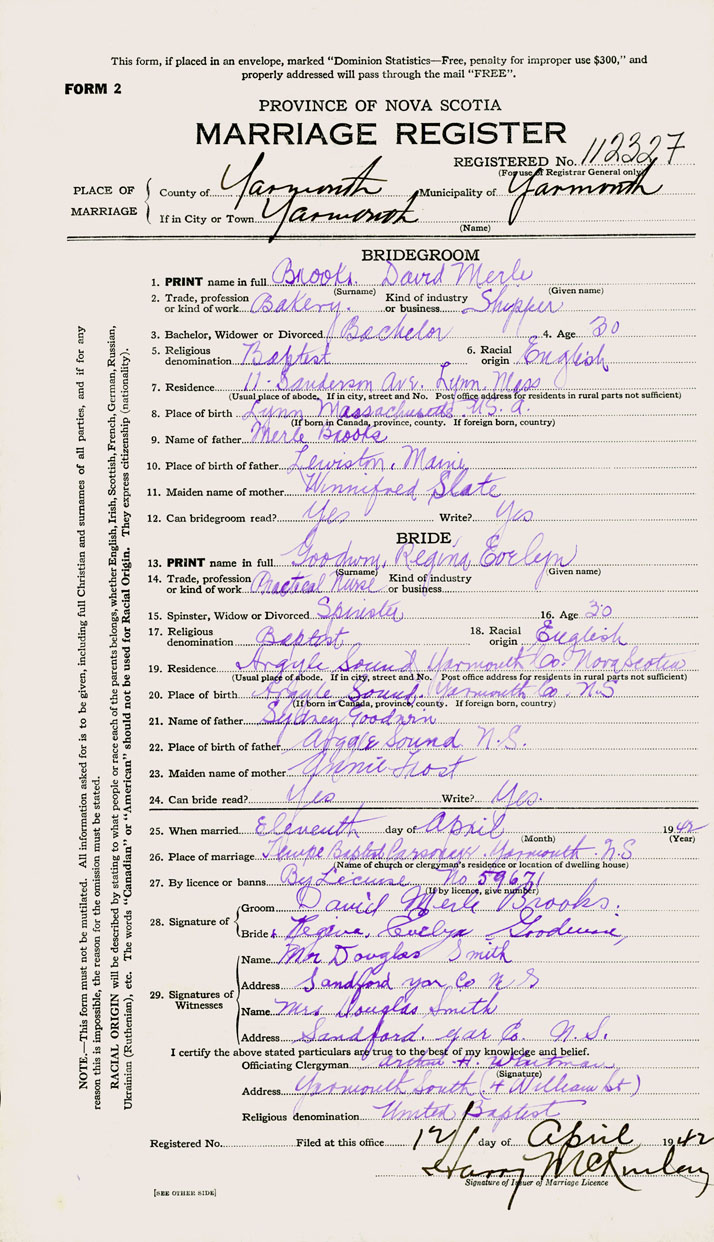 This form, if placed in an envelope, marked "Dominion Statistics—Free, penalty for improper use $300," and
properly addressed will pass through the mail "FREE".
FORM 2
PROVINCE OF NOVA SCOTIA
MARRIAGE REGISTER
REGISTERED No. 112327
(For use of Registrar General only)
PLACE OF MARRIAGE
County of Yarmouth Municipality of Yarmouth
If in City or Town Yarmouth
(Name)
BRIDEGROOM
1. PRINT name in full Brooks. David Merle
(Surname) (Given name)
2. Trade, profession or kind of work Bakery. Kind of industry or business Shipper
3. Bachelor, Widower or Divorced Bachelor 4. Age 30
5. Religious denomination Baptist 6. Racial origin English
7. Residence 11 Sanderson Ave. Lynn, Mass
(Usual place of abode. If in city, street and No. Post office address for residents in rural parts not sufficient)
8. Place of birth Lynn Massachusetts U.S.A.
(If born in Canada, province, county. If foreign born, country)
9. Name of father Merle Brooks
10. Place of birth of father Lewiston, Maine
11. Maiden name of mother Winnifred Slate
12. Can bridegroom read? Yes Write? Yes
BRIDE
13. PRINT name in full Goodwin, Regina Evelyn
(Surname) (Given name)
14. Trade, profession or kind of work Practical Nurse Kind of industry or business
15. Spinster, Widow or Divorced Spinster 16. Age 30
17. Religious denomination Baptist 18. Racial origin English
19. Residence Argyle Sound Yarmouth Co. Nova Scotia
(Usual place of abode. If in city, street and No. Post office address for residents in rural parts not sufficient)
20. Place of birth Argyle Sound, Yarmouth Co. N.S
(If born in Canada, province, county. If foreign born, country)
21. Name of father Sydney Goodwin
22. Place of birth of father Argyle Sound N.S.
23. Maiden name of mother Annie Frost
24. Can bride read? Yes Write? Yes.
25. When married Eleventh day of April 1942
(Month) (Year)
26. Place of marriage Baptist Parsonage. Yarmouth. N.S
(Name of church or clergyman's residence or location of dwelling house)
27. By licence or banns By No 59671
(If by licence, give number)
28. Signature of
Groom David Merle Brooks.
Bride Evelyn
29. Signatures of Witnesses
Name Mr Douglas Smith
Address Sandford yar Co N S
Name Mrs Douglas Smith
Address Sandford. yar Co. N. S.
I certify the above stated particulars are true to the best of my knowledge and belief.
Officiating Clergyman H. Whitman
(Signature)
Address Yarmouth South (4 William St)
Religious denomination United Baptist
Registered No. Filed at this office 12 day of April 1942
Harry McKinley
Signature of Issuer of Marriage Licence
[SEE OTHER SIDE]
NOTE.—This form must not be mutilated. All information asked for is to be given, including full Christian and surnames of all parties, and if for any
reason this is impossible, the reason for the omission must be stated.
RACIAL ORIGIN will be described by stating to what people or race each of the parents belongs, whether English, Irish, Scottish, French, German, Russian,
Ukrainian (Ruthenian), etc. The words "Canadian" or "American" should not be used for Racial Origin. They express citizenship (nationality).